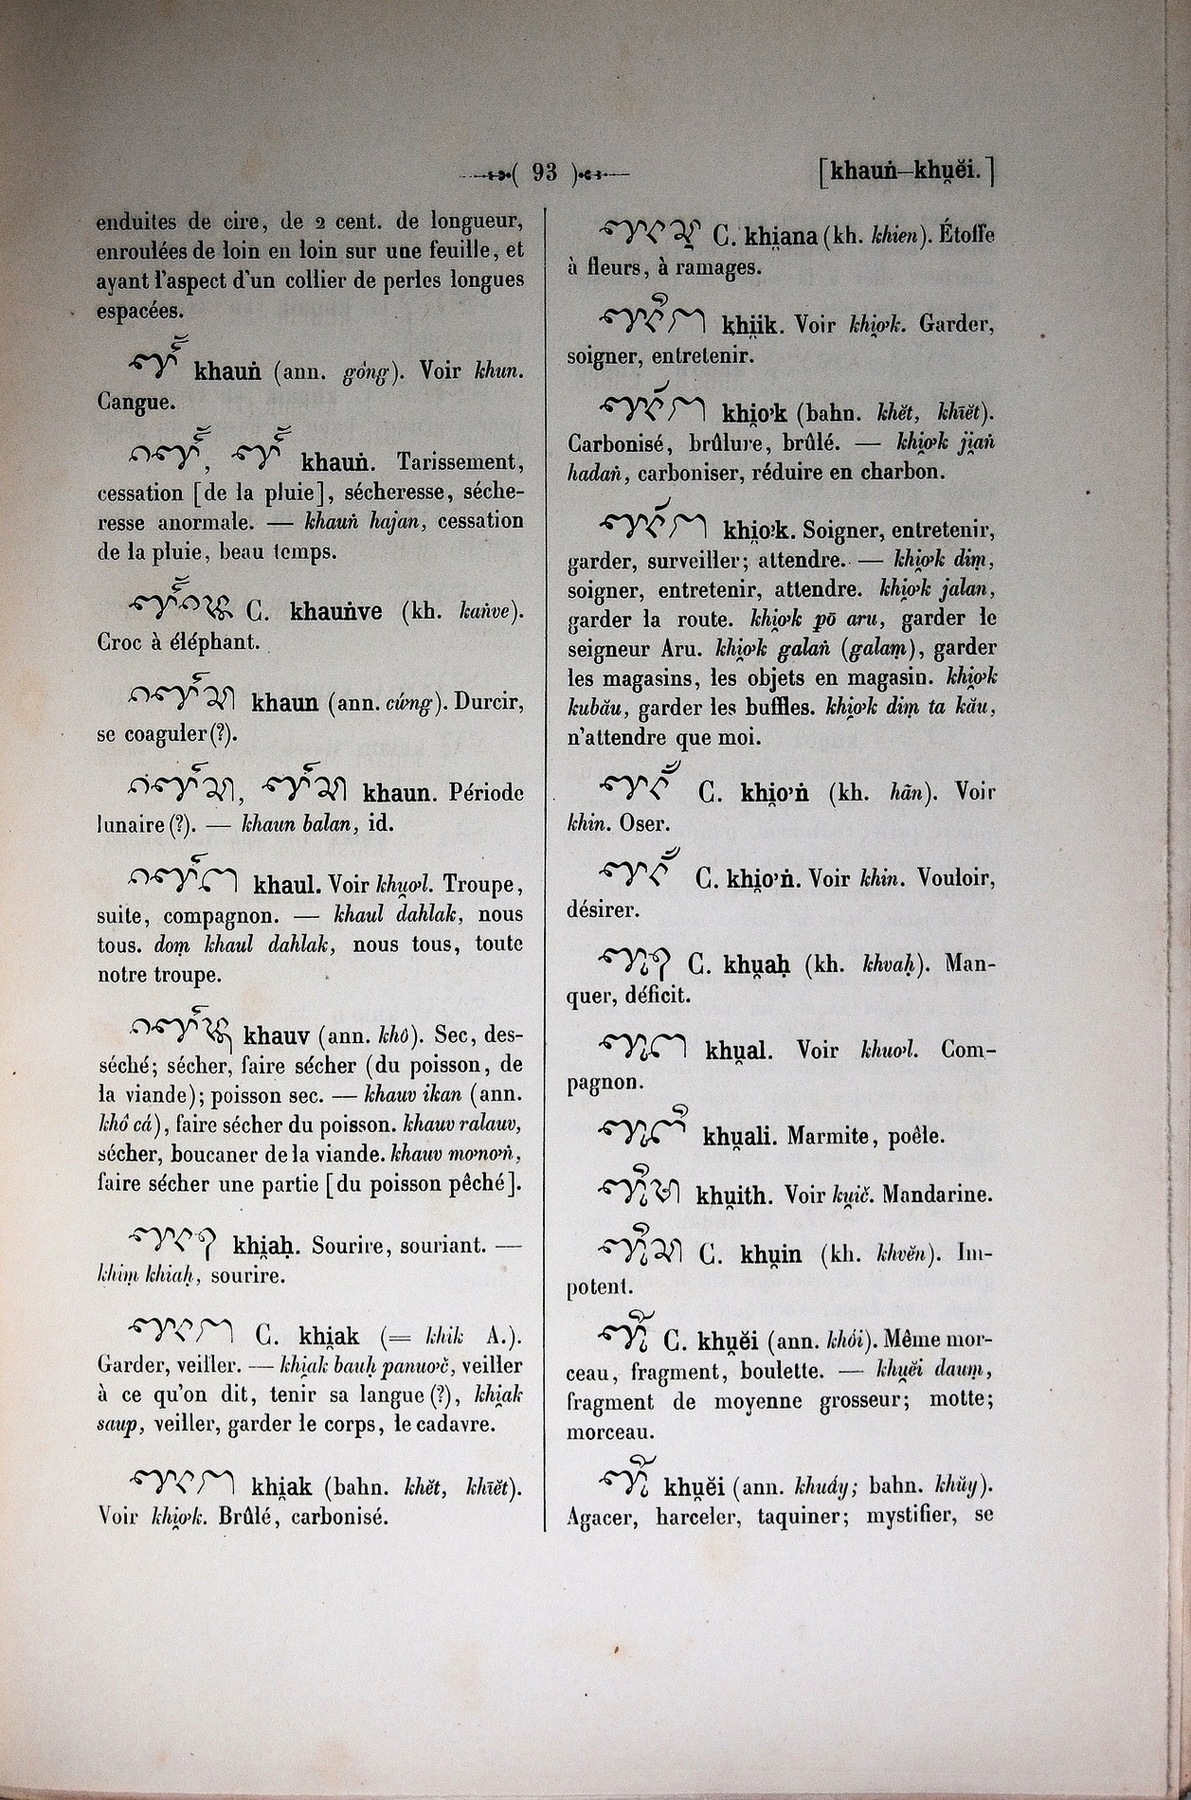 ( 93 )
[khauṅ—khu̯ĕi.]
enduites de cire, de 2 cent. de longueur,
enroulées de loin en loin sur une feuille, et
ayant l'aspect d'un collier de perles longues
espacées.
khauṅ (ann. gông). Voir khun.
Cangue.
khauṅ. Tarissement,
cessation [de la pluie], sécheresse, séche-
resse anormale. — khauṅ hajan, cessation
de la pluie, beau temps.
C. khauṅve (kh. kaṅve).
Croc à éléphant.
khaun (ann. cứng). Durcir,
se coaguler (?).
khaun. Période
lunaire (?). — khaun balan, id.
khaul. Voir khu̯o̓l. Troupe,
suite, compagnon. — khaul dahlak, nous
tous. doṃ khaul dahlak, nous tous, toute
notre troupe.
khauv (ann. khô). Sec, des-
séché; sécher, faire sécher (du poisson, de
la viande); poisson sec. — khauv ikan (ann.
khô cá), faire sécher du poisson. khauv ralauv,
sécher, boucaner de la viande. khauv mo̓no̓ṅ,
faire sécher une partie [du poisson pêché].
khi̯aḥ. Sourire, souriant. —
khiṃ khiaḥ, sourire.
C. khi̯ak (= khik A.).
Garder, veiller. — khi̯ak bauḥ panuo̓č, veiller
à ce qu'on dit, tenir sa langue (?), khi̯ak
saup, veiller, garder le corps, le cadavre.
khi̯ak (bahn. khĕt, khīĕt).
Voir khi̯o̓k. Brûlé, carbonisé.
C. khi̯ana (kh. khien). Étoffe
à fleurs, à ramages.
khi̯ik. Voir khi̯o̓k. Garder,
soigner, entretenir.
khi̯o̓k (bahn. khĕt, khīĕt).
Carbonisé, brûlure, brûlé. — khi̯o̓k ji̯aṅ
hadaṅ, carboniser, réduire en charbon.
khi̯o̓k. Soigner, entretenir,
garder, surveiller; attendre. — khi̯o̓k diṃ,
soigner, entretenir, attendre. khi̯o̓k jalan,
garder la route. khi̯o̓k pō aru, garder le
seigneur Aru. khi̯o̓k galaṅ (galaṃ), garder
les magasins, les objets en magasin. khi̯o̓k
kubău, garder les buffles. khi̯o̓k diṃ ta kău,
n'attendre que moi.
C. khi̯o̓ṅ (kh. hān). Voir
khin. Oser.
C. khi̯o̓ṅ. Voir khin. Vouloir,
désirer.
C. khu̯aḥ (kh. khvaḥ). Man-
quer, déficit.
khu̯al. Voir khuo̓l. Com-
pagnon.
khu̯ali. Marmite, poêle.
khu̯ith. Voir ku̯ič. Mandarine.
C. khu̯in (kh. khvĕn). Im-
potent.
C. khu̯ĕi (ann. khỏi). Même mor-
ceau, fragment, boulette. — khu̯ĕi dauṃ,
fragment de moyenne grosseur; motte;
morceau.
khu̯ĕi (ann. khuấy; bahn. khŭy).
Agacer, harceler, taquiner; mystifier, se